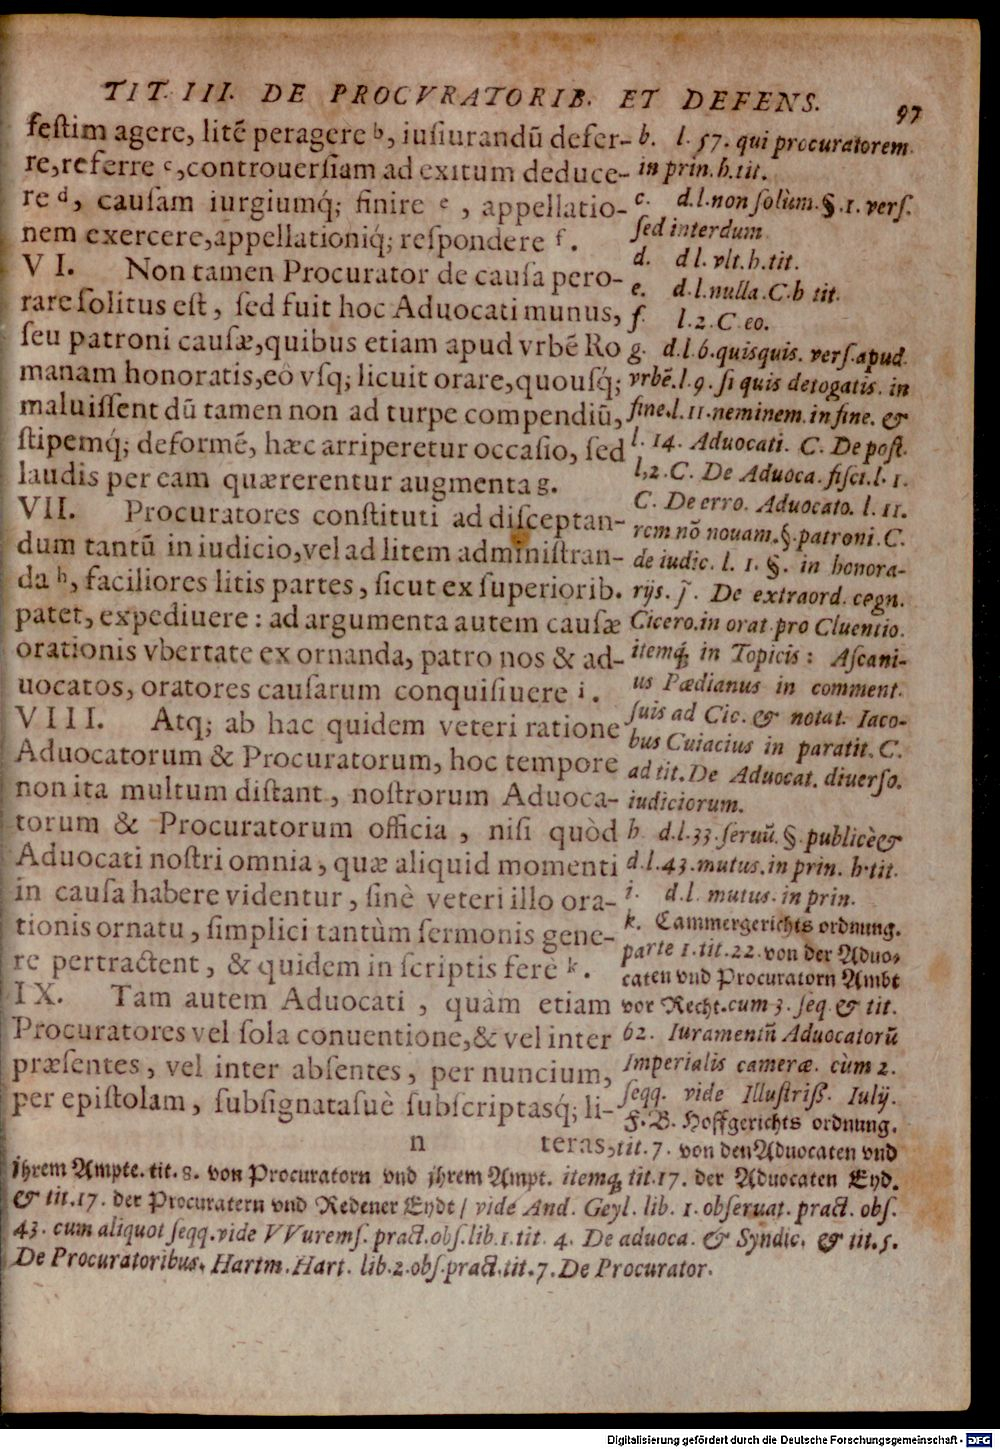 TIT. III. DE PROCVRATORIB. ET DEFENS.
97
feſtim agere, litē peragere b, iuſiurandū defer-
re, referre c, controuerſiam ad exitum deduce-
re d, cauſam iurgiumq́; finire e, appellatio-
nem exercere, appellationiq́; reſpondere f.
VI. Non tamen Procurator de cauſa pero-
rare ſolitus eſt, ſed fuit hoc Aduocati munus,
ſeu patroni cauſæ, quibus etiam apud vrbē Ro
manam honoratis, eò vſq; licuit orare, quouſq́;
maluiſſent dū tamen non ad turpe compendiū,
ſtipemq́; deformē, hæc arriperetur occaſio, ſed
laudis per eam quærerentur augmenta g.
VII. Procuratores conſtituti ad diſceptan-
dum tantū in iudicio, vel ad litem adminiſtran-
da h, faciliores litis partes, ſicut ex ſuperiorib.
patet, expediuere: ad argumenta autem cauſæ
orationis vbertate exornanda, patronos & ad-
uocatos, oratores cauſarum conquiſiuere i.
VIII. Atq; ab hac quidem veteri ratione
Aduocatorum & Procuratorum, hoc tempore
non ita multum diſtant, noſtrorum Aduoca-
torum & Procuratorum officia, niſi quòd
Aduocati noſtri omnia, quæ aliquid momenti
in cauſa habere videntur, ſinè veteri illo ora-
tionis ornatu, ſimplici tantùm ſermonis gene-
re pertractent, & quidem in ſcriptis ferè k.
IX. Tam autem Aduocati, quàm etiam
Procuratores vel ſola conuentione, & vel inter
præſentes, vel inter abſentes, per nuncium,
per epiſtolam, ſubſignataſuè ſubſcriptasq́; li-
n teras,
b. l. 57. qui procuratorem
in prin. h. tit.
c. d. l. non ſolùm. §. 1. verſ.
ſed interdum
d. d l. vlt. h. tit.
e. d. l. nulla. C. h tit.
f. l. 2. C. eo.
g. d. l. 6. quisquis. verſ. apud
vrbē. l. 9. ſi quis detogatis. in
fine. l. 11. neminem. in fine. &
l. 14. Aduocati. C. De poſt.
l, 2. C. De Aduoca. fiſci. l. 1.
C. De erro. Aduocato. l. 11.
rem nõ nouam. §. patroni. C.
de iudic. l. 1. §. in honora-
rijs. ſ. De extraord. cogn.
Cicero. in orat. pro Cluentio.
itemq́; in Topicis: Aſcani-
us Pædianus in comment.
ſuis ad Cic. & notat. Iaco-
bus Cuiacius in paratit. C.
ad tit. De Aduocat. diuerſo.
iudiciorum.
h d. l. 33. ſeruū. §. publicè &
d. l. 43. mutus. in prin. h. tit.
i. d. l. mutus. in prin.
k. Cammergerichts ordnung.
parte 1. tit. 22. von der Aduo-
caten vnd Procuratorn Ambt
vor Recht. cum 3. ſeq. & tit.
62. Iuramentū Aduocatorū
Imperialis cameræ. cùm 2.
ſeqq. vide Illuſtriſſ. Iulij.
F. B. Hoffgerichts ordnung.
tit. 7. von den Aduocaten vnd
jhrem Ampte. tit. 8. von Procuratorn vnd jhrem Ampt. itemq́; tit. 17. der Aduocaten Eyd.
& tit. 17. der Procuratern vnd Redener Eydt / vide And. Geyl. lib. 1. obſeruat. pract. obſ.
43. cum aliquot ſeqq. vide VVuremſ. pract. obſ. lib. 1. tit. 4. De aduoca. & Syndic. & tit. 5.
De Procuratoribus. Hartm. Hart. lib. 2. obſ. pract. tit. 7. De Procurator.
Digitalisierung gefördert durch die Deutsche Forschungsgemeinschaft - DFG